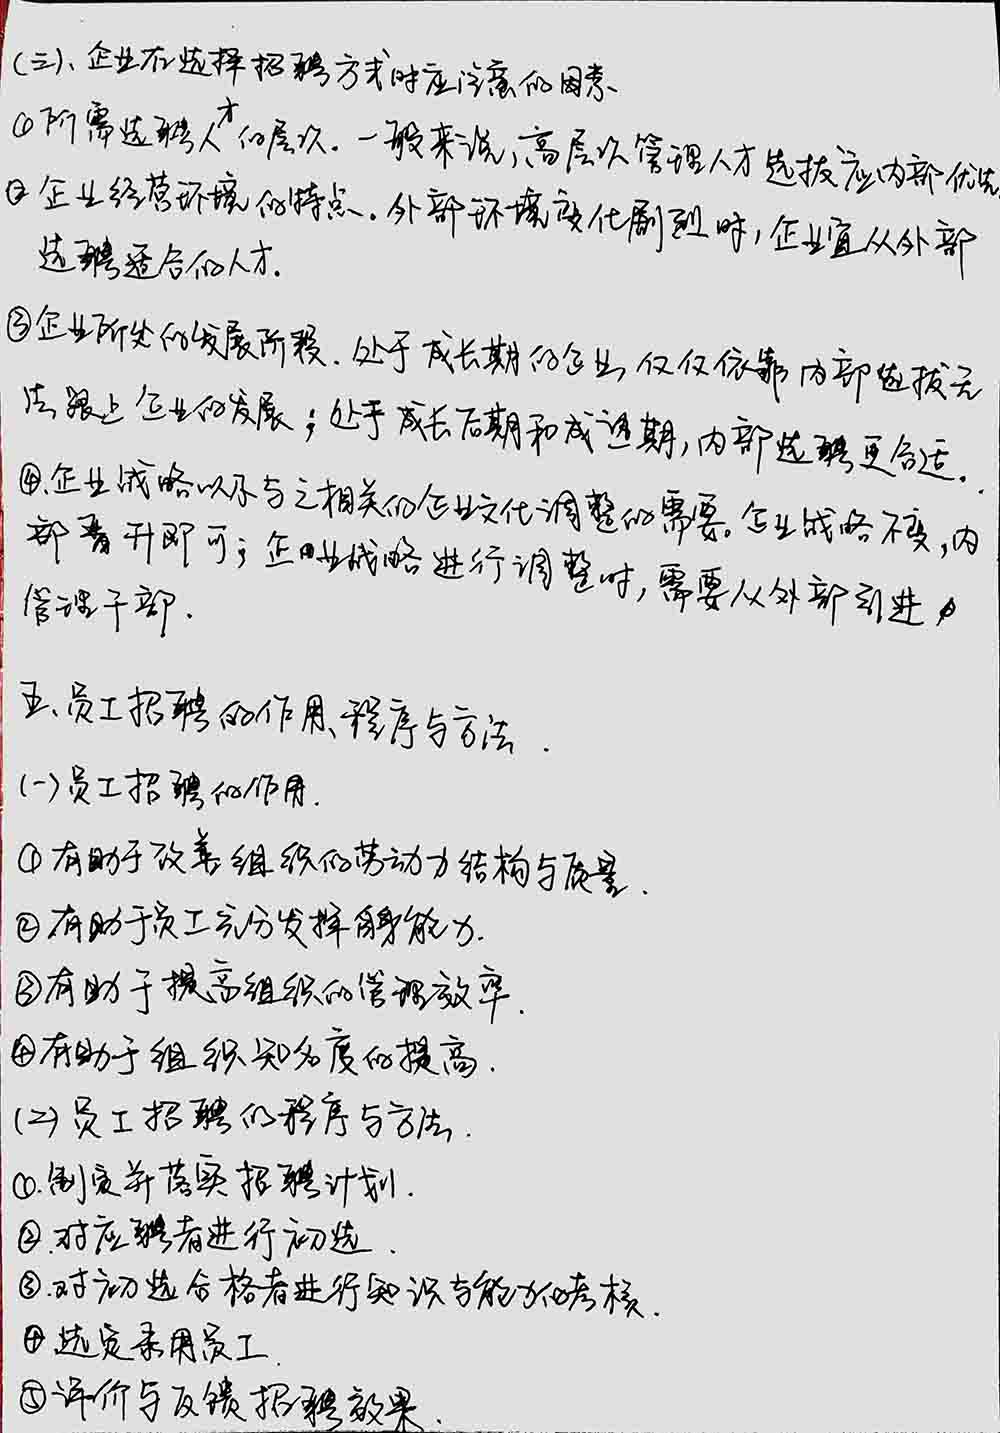 (三)、企业在选择招聘方式时应注意的因素、
①所需选聘人才的层次. 一般来说,高层次管理人才选拔应内部优先.
②企业经营环境的特点. 外部环境变化剧烈时,企业宜从外部
选聘适合的人才.
③企业所处的发展阶段. 处于成长期的企业,仅仅依靠内部选拔无
法跟上企业的发展;处于成长后期和成熟期,内部选聘更合适.
④.企业战略以及与之相关的企业文化调整的需要。企业战略不变,内
部晋升即可;企业战略进行调整时,需要从外部引进
管理干部.
五、员工招聘的作用、程序与方法.
(一)员工招聘的作用.
①有助于改善组织的劳动力结构与质量.
②有助于员工充分发挥自身能力.
③有助于提高组织的管理效率.
④有助于组织知名度的提高.
(二)员工招聘的程序与方法.
①.制定并落实招聘计划.
②.对应聘者进行初选.
③.对初选合格者进行知识与能力的考核.
④选定录用员工.
⑤评价与反馈招聘效果.